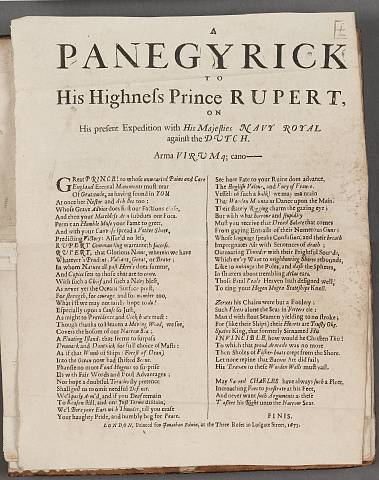 A
PANEGYRICK
TO
His Highneſs Prince RUPERT,
ON
His preſent Expedition with His Majeſties NAVY ROYAL
againſt the DUTCH.
Arma VIRUMq; cano——
GReat PRINCE! to whoſe unwearied Pains and Care
England Eternal Monuments muſt rear
Of Gratitude, as having found in YOU
At once her Neſtor and Achilles too:
Whoſe Grave Advice does firſt our Factions
And then your Matchleſs Arm ſubdues our Foes.
Permit an Humble Muſe your Fame to greet,
And with your Canvaſs ſpread a Paper Sheet,
Predicting Victory: Aſſur'd no leſs,
RUPERT Commanding
RUPERT, that Glorious Name, wherein we have
Whatever's Prudent, Valiant, Great, or Brave;
In whom Nature all
And Copies ſets up thoſe that are to come.
With ſuch a Chief and ſuch a Navy bleſt,
As never yet the Ocean's Surface preſt,
For ſtrength, for courage, and for number too,
What iſt we may not hope to do?
Especially upon a Cauſe ſo Juſt,
As might to Providence and Clock-work truſt:
Though thanks to Heaven a Moving Wood, we ſee,
Covers the boſom of our Narrow Sea;
A Floating Iſland, that ſeems to forsake
Denmark and
As if that Womb of Ships
Into the Ocean now had ſhifted Scene.
Phanſie no more Fond Hogens to ſurpriſe
Us with Fair Words and Foul Advantages;
Nor hope a doubtful Treacherous pretence
Shall guide us to omit needful Defence.
We'l parly and if you Deaf remain
To Reaſon ſtill, and our Juſt Terms diſdain,
We'l Bore your Ears with Thunder, till you craſe
Your haughty Pride, and humbly beg for Peace.
See here Fate to your Ruine does advance,
The Engliſh Valour, and Fury of France.
Veſſels of ſuch a bulk! we may maintain
That Warden Mountains Dance upon the Main.
Their ſtately Rigging charm the gazing eye;
But with what horrour and ſtupidity
Muſt you receive that Dread Salute that comes
From gaping Entrails of their Numerous Guns?
Whoſe Language ſpeaks Concluſions, and their breath
Impregnates Air with Sentences of death;
Thunder with their Brightful Sounds,
Which ev'ry Wave to neighbouring Shores rebounds,
Like to untunge the Poles, and daſh the Spheres,
In ſhatters about trembling Atlas ears.
Thoſe Fatal Peals Heaven hath deſigned well,
To ring your Hogen Mogen State Knell.
Zerxes his Chains were but a Foolery;
Such Fleets alone the Seas in Fetters tie:
Muſt with ſtout Stamen yielding to no ſtroke
For (like their Ships) their Hearts are Oak.
Spains King, that formerly Sirnamed His
INVINCIBLE, how would he Chriſten This!
To which his proud Armada was no more
Then Sholes of Fiſher-boats crept from the Shore.
Let none repine that Bacon hee did fully
His Treaſon to theſe Warden Walls muſt call.
May Sacred CHARLES have always ſuch a Fleet,
Incroaching Foes to proſtrate at his Feet,
And never want ſuch Arguments as theſe
T'aſſert his Right unto the Narrow Seas.
FINIS.
LONDON, Printed for Jonathan Edwin, at the Three Roſes in Ludgate ſtreet, 1673.